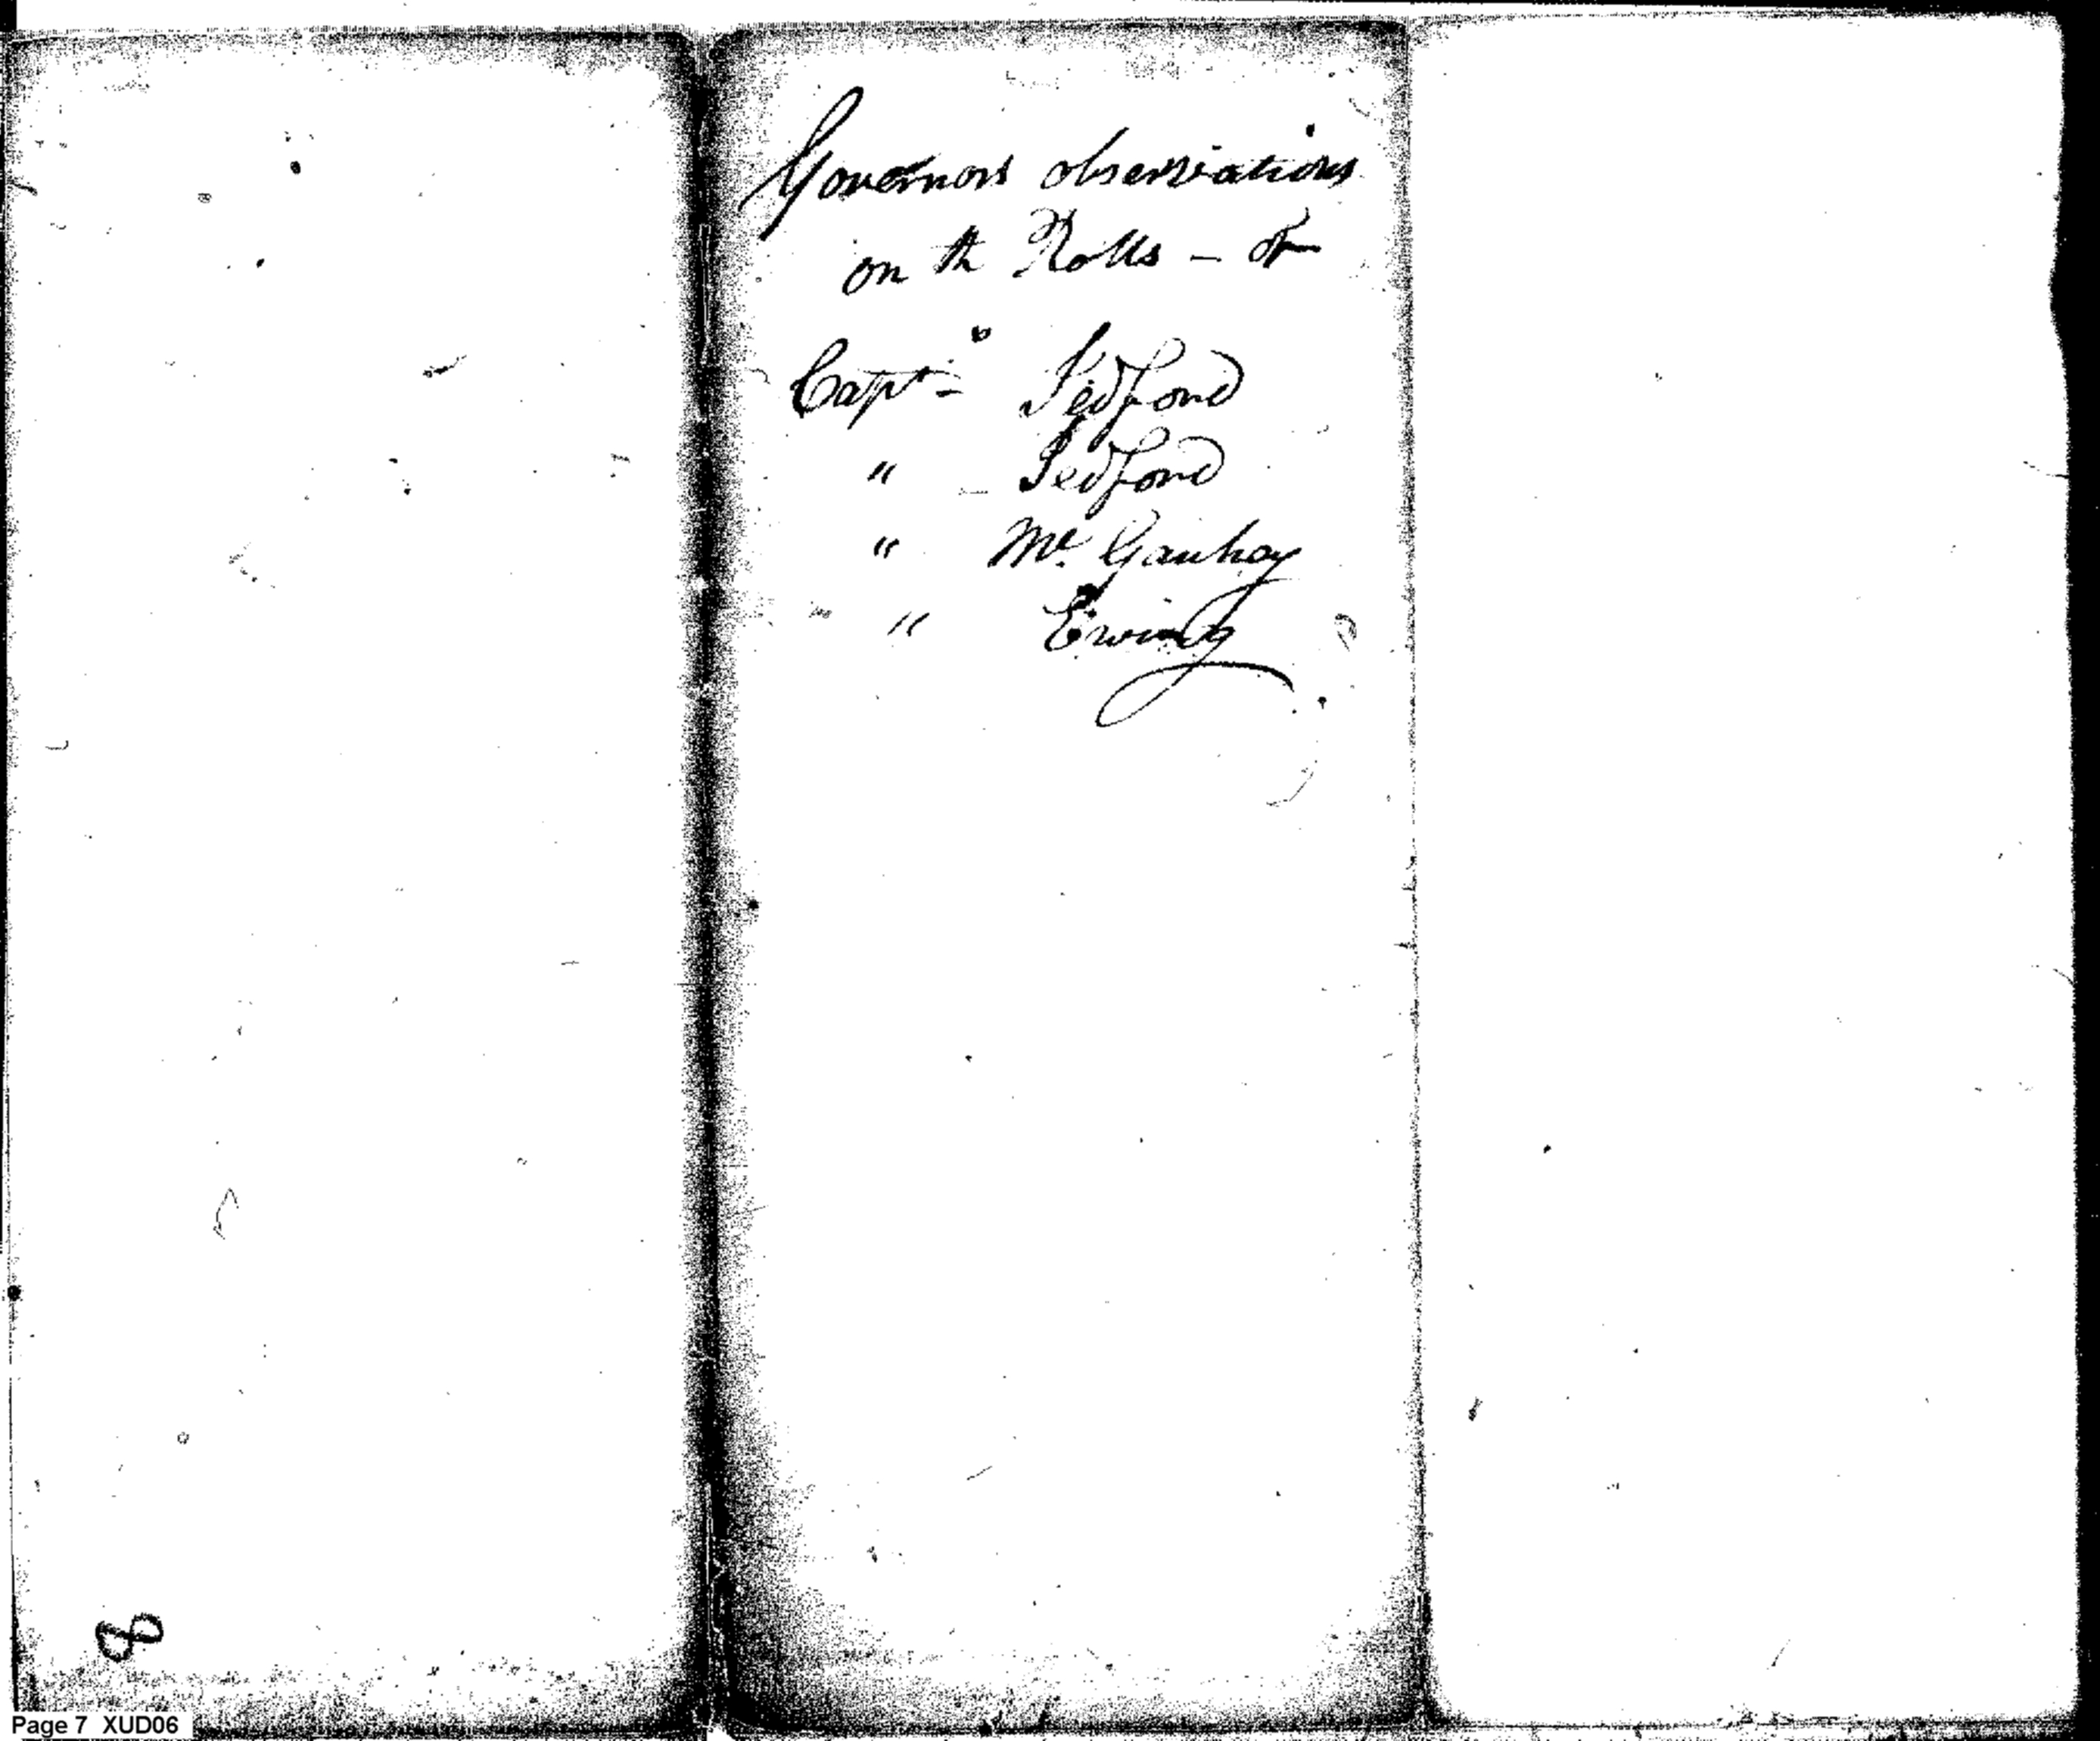 Governors observations
on th Rolls – of
Capts Tedford
" – Tedford
" Mc Gauhey
" Ewing
8
Page 7 XUD06